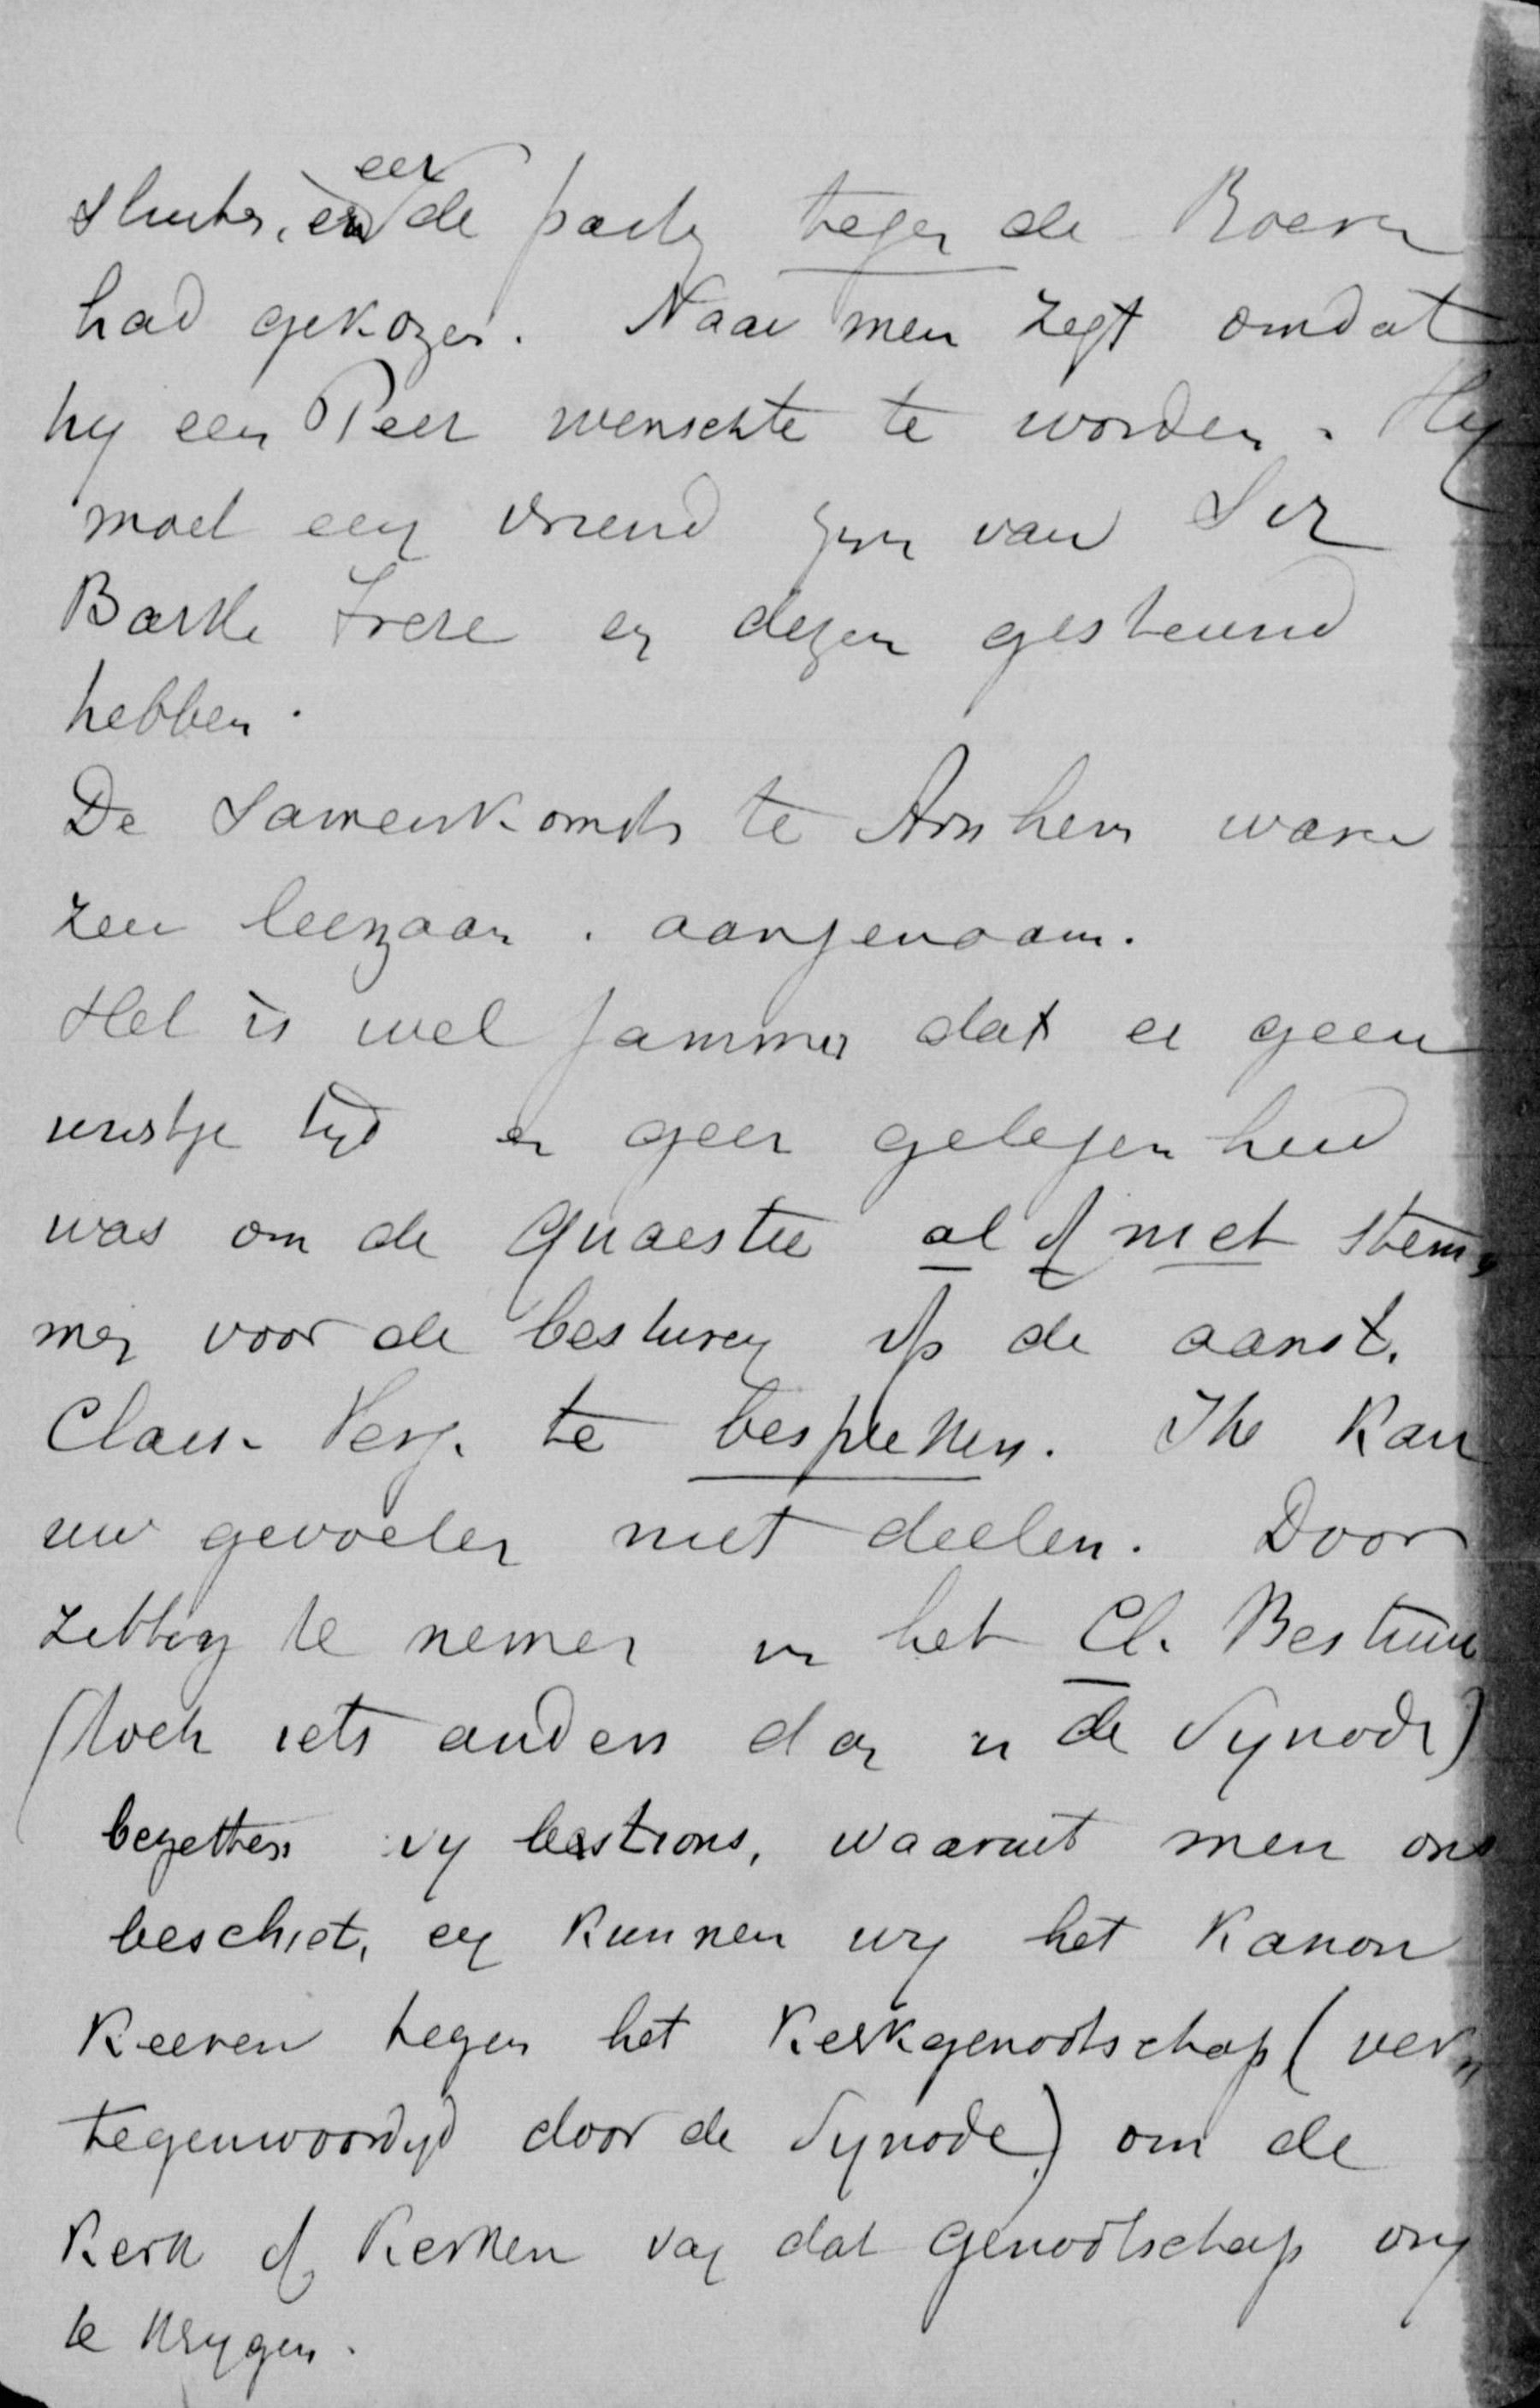 sluiter, eer de party tegen de Boeren
had gekozen. Naar men zegt omdat
hy een Peer wenschte te worden. Hy
moet een vriend zyn van Sir
Bartle Frere en dezen gesteund
hebben.
De Samenkomsten te Arnhem waren
zeer leerzaam. aangenaam.
Het is wel jammer dat er geen
rustige tyd en geen gelegenheid
was om de quaestie al of niet stem-
men voor de besturen op de aanst.
Class. Verg. te bespreken. Ik kan
uw gevoelen niet deelen. Door
zitting te nemen in het Cl. Bestuur
(toch iets anders dan in de Synode)
bezetten wy bastions, waaruit men ons
beschiet, en kunnen wy het kanon
keeren tegen het Kerkgenootschap (ver-
tegenwoordigd door de Synode) om de
Kerk of Kerken van dat genootschap vry
te krygen.